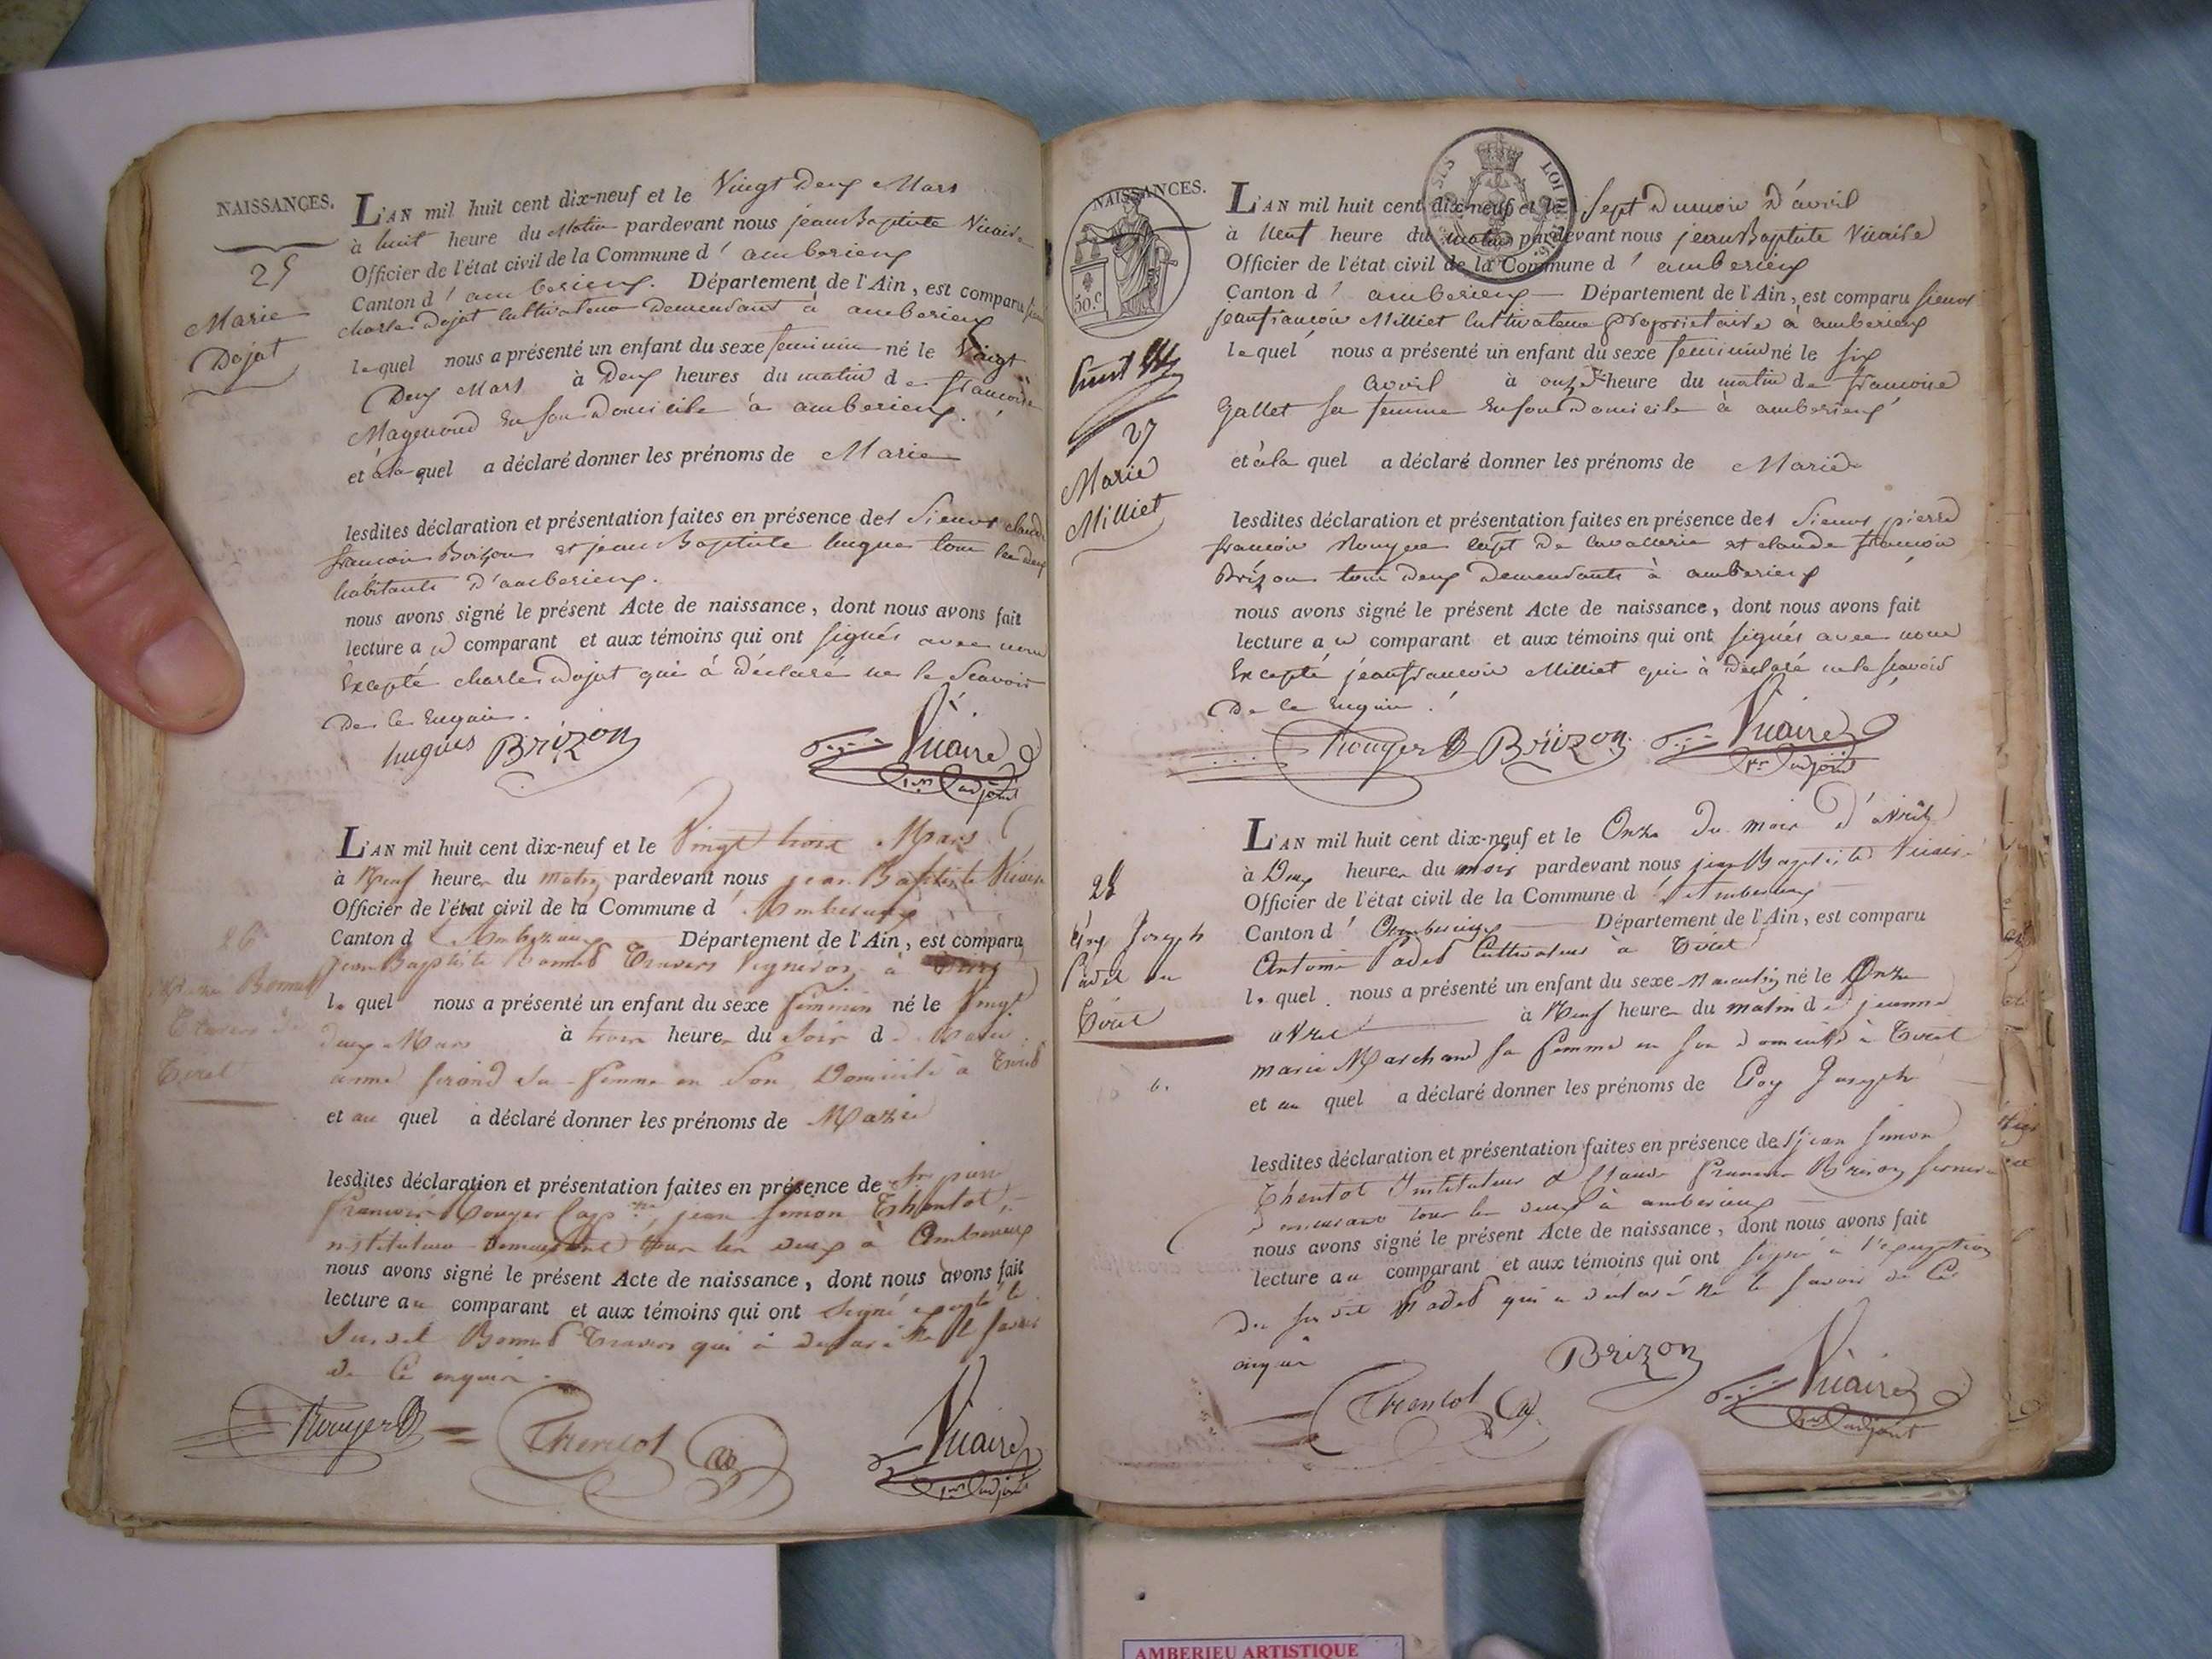 NAISSANCES.
25
Marie
Dojat
L'AN mil huit cent dix-neuf et le Vingt Deux Mars
à huit heure du Matin pardevant nous jean Baptiste Vicaire
Officier de l'état civil de la Commune d' amberieux
Canton d' amberieux. Département de l'Ain, est comparu
charles Dojat Cultivateur Demeurant à amberieux
lequel nous a présenté un enfant du sexe feminin né le Vingt
Deux Mars à Deux heures du matin de francoise
Magenoud En son Domicile à amberieux.
et à la quel a déclaré donner les prénoms de Marie
lesdites déclaration et présentation faites en présence des Sieurs claude
francois Brizon et jean Baptiste hugues tous les deux
habitants d'amberieux.
nous avons signé le présent Acte de naissance, dont nous avons fait
lecture a comparant et aux témoins qui ont signés avec nous
Excepté charles Dojat qui à déclaré ne le Scavoir
De ce Enquis.
hugues Brizon Vicaire
1er adjoint
26
Bonnet
Travers
Tiret
L'AN mil huit cent dix-neuf et le Vingt trois Mars
à Neuf heure du matin pardevant nous jean Baptiste Vicaire
Officier de l'état civil de la Commune d' Amberieux
Canton d' Amberieux Département de l'Ain, est comparu
Jean Baptiste Bonnet Travers Vigneron à
le quel nous a présenté un enfant du sexe féminin né le Vingt
deux Mars à trois heure du Soir de Marie
anne sa femme en Son Domicile à Tiret
et au quel a déclaré donner les prénoms de Marie
lesdites déclaration et présentation faites en présence de Sr pierre
francois Rouyer Capne, jean Simon Thentot,
instituteur Demeurant tous les deux à Amberieux
nous avons signé le présent Acte de naissance, dont nous avons fait
lecture au comparant et aux témoins qui ont Signé excepté le
Susdit Bonnet Travers qui à déclaré Ne le Savoir
de Ce enquis.
Rouyer Thentot Vicaire
1er adjoint
NAISSANCES.
50.c
SIS LOI
27
Marie
Milliet
L'AN mil huit cent dix-neuf et le Sept Du mois D'avril
à Neuf heure du matin pardevant nous jean Baptiste Vicaire
Officier de l'état civil de la Commune d' amberieux
Canton d' amberieux Département de l'Ain, est comparu sieur
jean francois Milliet Cultivateur proprietaire à amberieux
lequel nous a présenté un enfant du sexe feminin né le six
avril à onze heure du matin de francoise
Gallet sa femme En son Domicile à amberieux
et à la quel a déclaré donner les prénoms de Marie
lesdites déclaration et présentation faites en présence des Sieurs pierre
francois Rouyer Capt De Cavallerie et claude francois
Brizon tous Deux Demeurants à amberieux
nous avons signé le présent Acte de naissance, dont nous avons fait
lecture a comparant et aux témoins qui ont signés avec nous
Excepté jean francois Milliet qui à déclaré ne le scavoir
De ce Enquis.
Rouyer Brizon Vicaire
1er adjoint
28
Joseph
Padet
Tiret
L'AN mil huit cent dix-neuf et le Onze du mois d'avril
à Deux heure du pardevant nous jean Baptiste Vicaire
Officier de l'état civil de la Commune d' Amberieux
Canton d' Amberieux Département de l'Ain, est comparu
Antoine Padet Cultivateur à Tiret
le quel nous a présenté un enfant du sexe Masculin né le Onze
avril à Neuf heure du matin de jeanne
marie Marchand sa femme en son domicile à Tiret
et au quel a déclaré donner les prénoms de Joseph
lesdites déclaration et présentation faites en présence de Sr jean Simon
Thentot Instituteur et Claude francois Brizon
demeurant tous les deux à amberieux
nous avons signé le présent Acte de naissance, dont nous avons fait
lecture au comparant et aux témoins qui ont signé à l'exception
du susdit Padet qui a déclaré ne le savoir de Ce
enquis
Thentot Brizon Vicaire
1er adjoint
AMBERIEU ARTISTIQUE